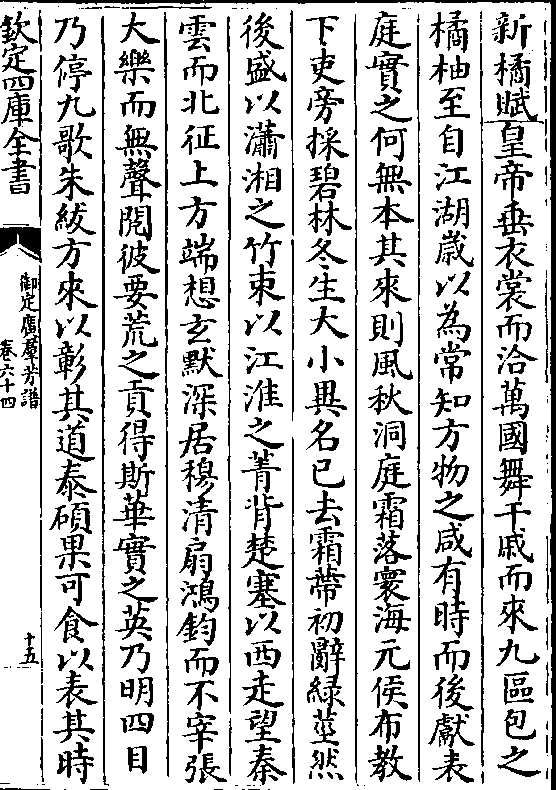 新橘賦皇帝垂衣裳而洽萬國舞干戚而來九區包之
橘柚至自江湖歳以為常知方物之咸有時而後獻表
庭實之何無本其來則風秋洞庭霜落寰海元侯布教
下吏旁採碧林冬生大小異名已去霜蔕初辭緑莖然
後盛以瀟湘之竹束以江淮之菁背楚塞以西走望秦
雲而北征上方端想玄默深居穆清扇鴻鈞而不宰張
大樂而無聲閱彼要荒之貢得斯華實之英乃明四目
乃停九歌朱紱方來以彰其道泰碩果可食以表其時
欽定四庫全書
御定廣羣芳譜
卷六十四
十五